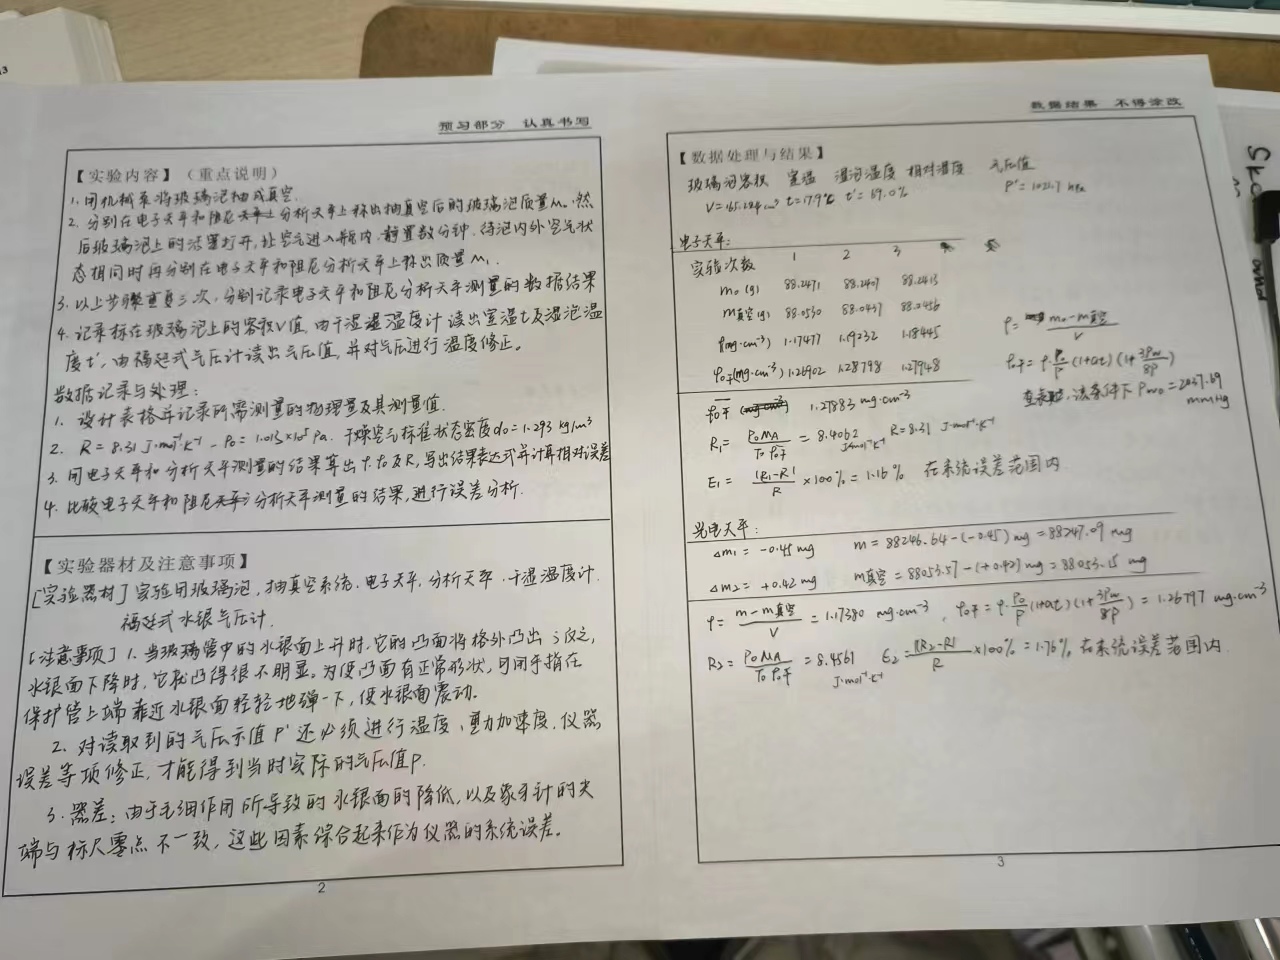 预习部分 认真书写
【实验内容】（重点说明）
1. 用机械泵将玻璃泡抽成真空.
2. 分别在电子天平和阻尼分析天平上称出抽真空后的玻璃泡质量m₀.然
后玻璃泡上的活塞打开,让空气进入瓶内.静置数分钟.待泡内外空气状
态相同时再分别在电子天平和阻尼分析天平上称出质量m₁.
3. 以上步骤重复三次,分别记录电子天平和阻尼分析天平测量的数据结果
4. 记录标在玻璃泡上的容积V值,由干湿温度计读出室温t及湿泡温
度t',由福廷式气压计读出气压值,并对气压进行温度修正。
数据记录与处理:
1. 设计表格并记录所需测量的物理量及其测量值.
2. R=8.31 J·mol⁻¹·K⁻¹ P₀=1.013×10⁵Pa. 干燥空气标准状态密度d₀=1.293 kg/m³
3. 用电子天平和分析天平测量的结果算出ρ.ρ₀及R,写出结果表达式并计算相对误差
4. 比较电子天平和阻尼分析天平测量的结果,进行误差分析.
【实验器材及注意事项】
[实验器材] 实验用玻璃泡,抽真空系统.电子天平,分析天平.干湿温度计.
福廷式水银气压计.
[注意事项] 1. 当玻璃管中的水银面上升时.它的凸面将格外凸出;反之,
水银面下降时,它就凸得很不明显。为使凸面有正常形状,可用手指在
保护管上端靠近水银面轻轻地弹一下,使水银面震动。
2. 对读取到的气压示值P'还必须进行温度、重力加速度.仪器
误差等项修正,才能得到当时实际的气压值P.
3. 器差:由于毛细作用所导致的水银面的降低,以及象牙针的尖
端与标尺零点不一致,这些因素综合起来作为仪器的系统误差。
2
数据结果 不得涂改
【数据处理与结果】
玻璃泡容积 室温 湿泡温度 相对湿度 气压值
V=165.284cm³ t=17.9℃ t'= 69.0% P'=1022.7 hPa
电子天平:
实验次数 1 2 3
m₀(g) 88.2471 88.2407 88.2413
m真空(g) 88.0530 88.0437 88.0456
ρ(mg·cm⁻³) 1.17477 1.19232 1.18445
ρ₀干(mg·cm⁻³) 1.26902 1.28798 1.27948
ρ=m₀-m真空/V
ρ₀干=ρ·P₀/P(1+αt)(1+3Pw/8P)
该条件下Pw0=2037.69
mmHg
ρ₀干 1.27883 mg·cm⁻³
R₁=P₀MA/T₀ρ₀干=8.4062 J·mol⁻¹·K⁻¹ R=8.31 J·mol⁻¹·K⁻¹
E₁=|R₁-R|/R×100%=1.16% 在系统误差范围内
光电天平:
Δm₁=-0.45mg m=88246.64-(-0.45)mg=88247.09 mg
Δm₂=+0.42mg m真空=88053.57-(+0.42)mg=88053.15 mg
ρ=m-m真空/V=1.17380 mg·cm⁻³, ρ₀干=ρ·P₀/P(1+αt)(1+3Pw/8P)=1.26797 mg·cm⁻³
R₂=P₀MA/T₀ρ₀干=8.4561 J·mol⁻¹·K⁻¹ E₂=|R₂-R|/R×100%=1.76%,在系统误差范围内.
3